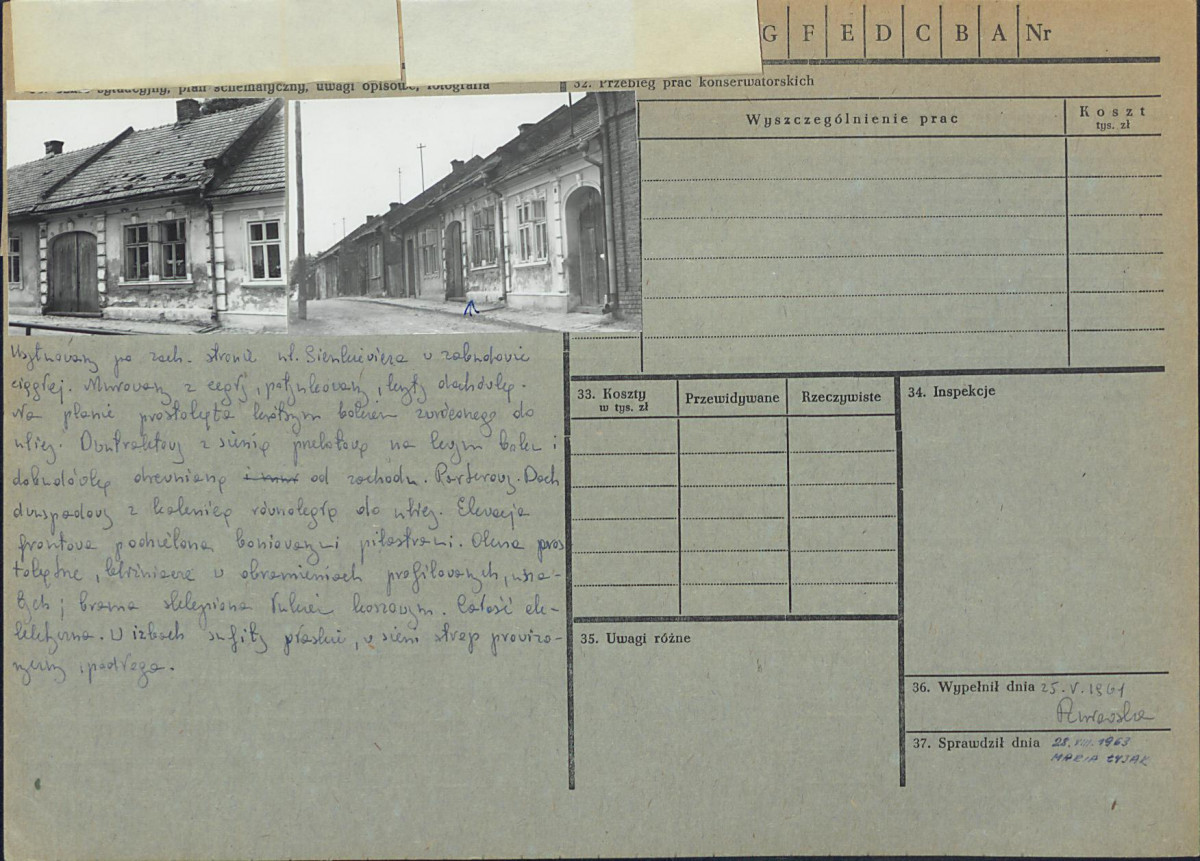 G F E D C B A Nr
sytuacyjny, plan schematyczny, uwagi opisowe, fotografia
32. Przebieg prac konserwatorskich
Wyszczególnienie prac
Koszt
tys. zł
Usytuowany po zach. stronie ul. Sienkiewicza w zabudowie
ciągłej. Murowany z cegły, potynkowany, kryty dachówką.
Na planie prostokąta krótszym bokiem zwróconego do
ulicy. Dwutraktowy z sienią przelotową na lewym boku i
dobudówką drewnianą od zachodu. Parterowy. Dach
dwuspadowy z kalenicą równoległą do ulicy. Elewacja
frontowa podzielona boniowanymi pilastrami. Okna pros
tokątne, bliźniacze w obramieniach profilowanych, usza-
tych; brama sklepiona łukiem koszowym. Całość ek-
lektyczna. W izbach sufity płaskie, w sieni strop prowizo-
ryczny, podłoga.
33. Koszty
w tys. zł
Przewidywane
Rzeczywiste
34. Inspekcje
35. Uwagi różne
36. Wypełnił dnia 25.V.1961
37. Sprawdził dnia 28.VIII.1963
MARIA